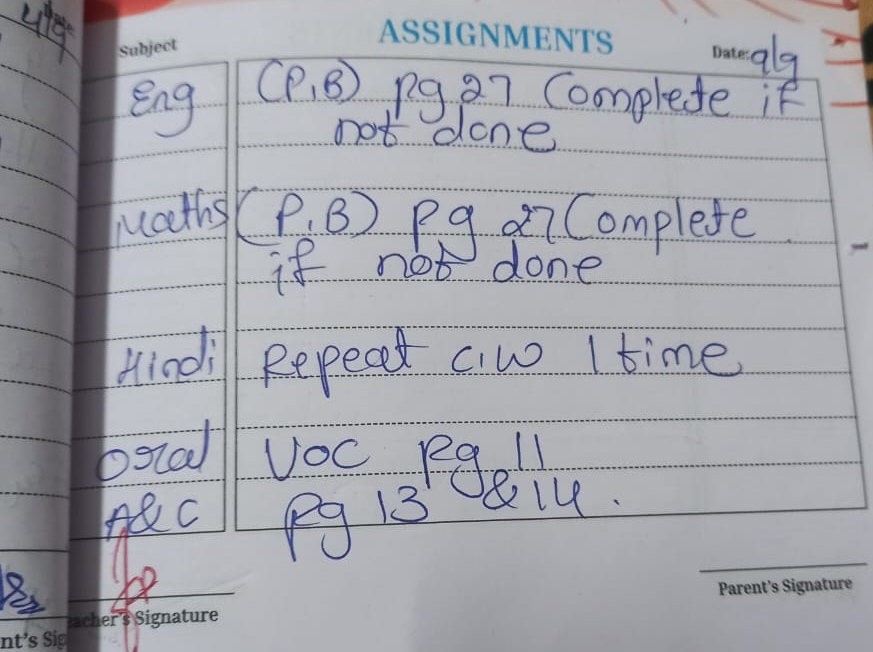 ASSIGNMENTS
Subject Date: 9/9
Eng (P.B) Pg 27 Complete if
not done
Maths (P.B) Pg 27 Complete
if not done
Hindi Repeat C.W 1 time
Oral Voc Pg 11
A&C Pg 13 & 14.
Parent's Signature
Teacher's Signature